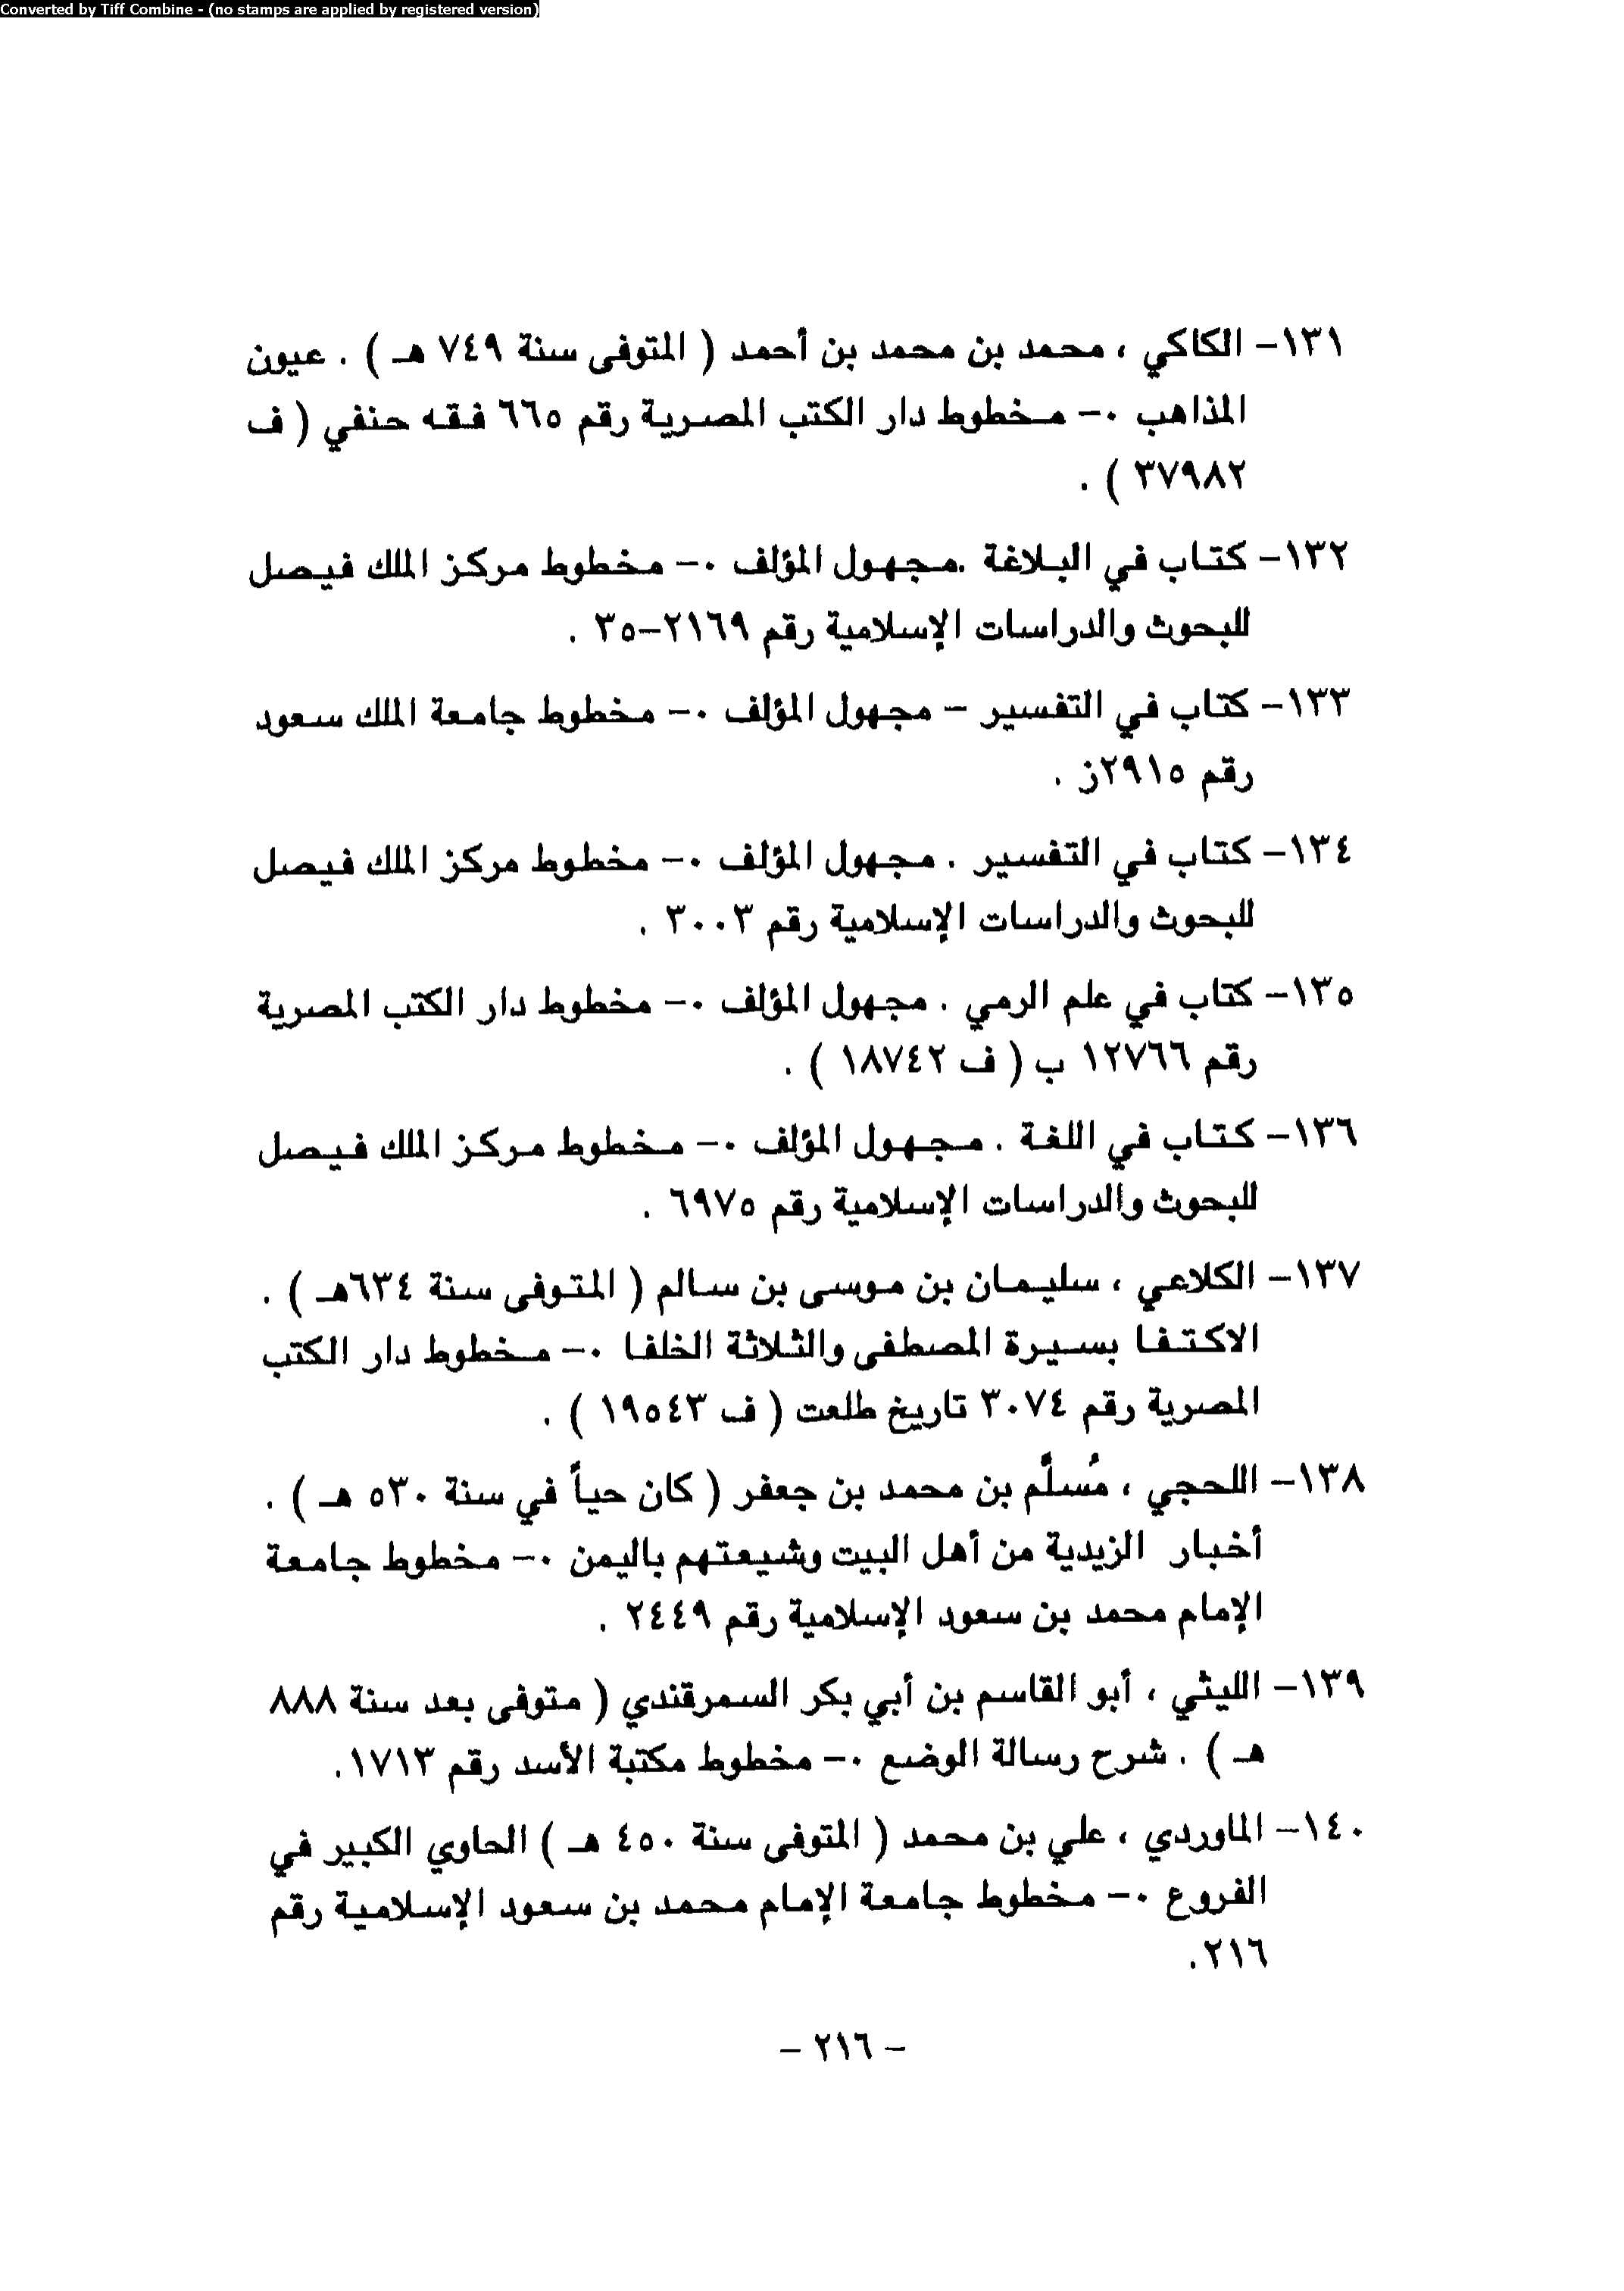 Converted by Tiff Combine - (no stamps are applied by registered version)
١٣١- الكاكي ، محمد بن محمد بن أحمد ( المتوفى سنة ٧٤٩ هـ ) . عيون
المذاهب ٠- مخطوط دار الكتب المصرية رقم ٦٦٥ فقه حنفي ( ف
٣٧٩٨٢ ) .
١٣٢- كتاب في البلاغة .مجهول المؤلف ٠- مخطوط مركز الملك فيصل
للبحوث والدراسات الإسلامية رقم ٢١٦٩-٣٥ .
١٣٣- كتاب في التفسير - مجهول المؤلف ٠- مخطوط جامعة الملك سعود
رقم ٢٩١٥ز .
١٣٤- كتاب في التفسير . مجهول المؤلف ٠- مخطوط مركز الملك فيصل
للبحوث والدراسات الإسلامية رقم ٣٠٠٣ .
١٣٥- كتاب في علم الرمي . مجهول المؤلف ٠- مخطوط دار الكتب المصرية
رقم ١٢٧٦٦ ب ( ف ١٨٧٤٢ ) .
١٣٦- كتاب في اللغة . مجهول المؤلف ٠- مخطوط مركز الملك فيصل
للبحوث والدراسات الإسلامية رقم ٦٩٧٥ .
١٣٧- الكلاعي ، سليمان بن موسى بن سالم ( المتوفى سنة ٦٣٤هـ ) .
الاكتفا بسيرة المصطفى والثلاثة الخلفا ٠- مخطوط دار الكتب
المصرية رقم ٣٠٧٤ تاريخ طلعت ( ف ١٩٥٤٣ ) .
١٣٨- اللحجي ، مُسلَّم بن محمد بن جعفر ( كان حياً في سنة ٥٣٠ هـ ) .
أخبار الزيدية من أهل البيت وشيعتهم باليمن ٠- مخطوط جامعة
الإمام محمد بن سعود الإسلامية رقم ٢٤٤٩ .
١٣٩- الليثي ، أبو القاسم بن أبي بكر السمرقندي ( متوفى بعد سنة ٨٨٨
هـ ) . شرح رسالة الوضع ٠- مخطوط مكتبة الأسد رقم ١٧١٣.
١٤٠- الماوردي ، علي بن محمد ( المتوفى سنة ٤٥٠ هـ ) الحاوي الكبير في
الفروع ٠- مخطوط جامعة الإمام محمد بن سعود الإسلامية رقم
٢١٦.
- ٢١٦ -